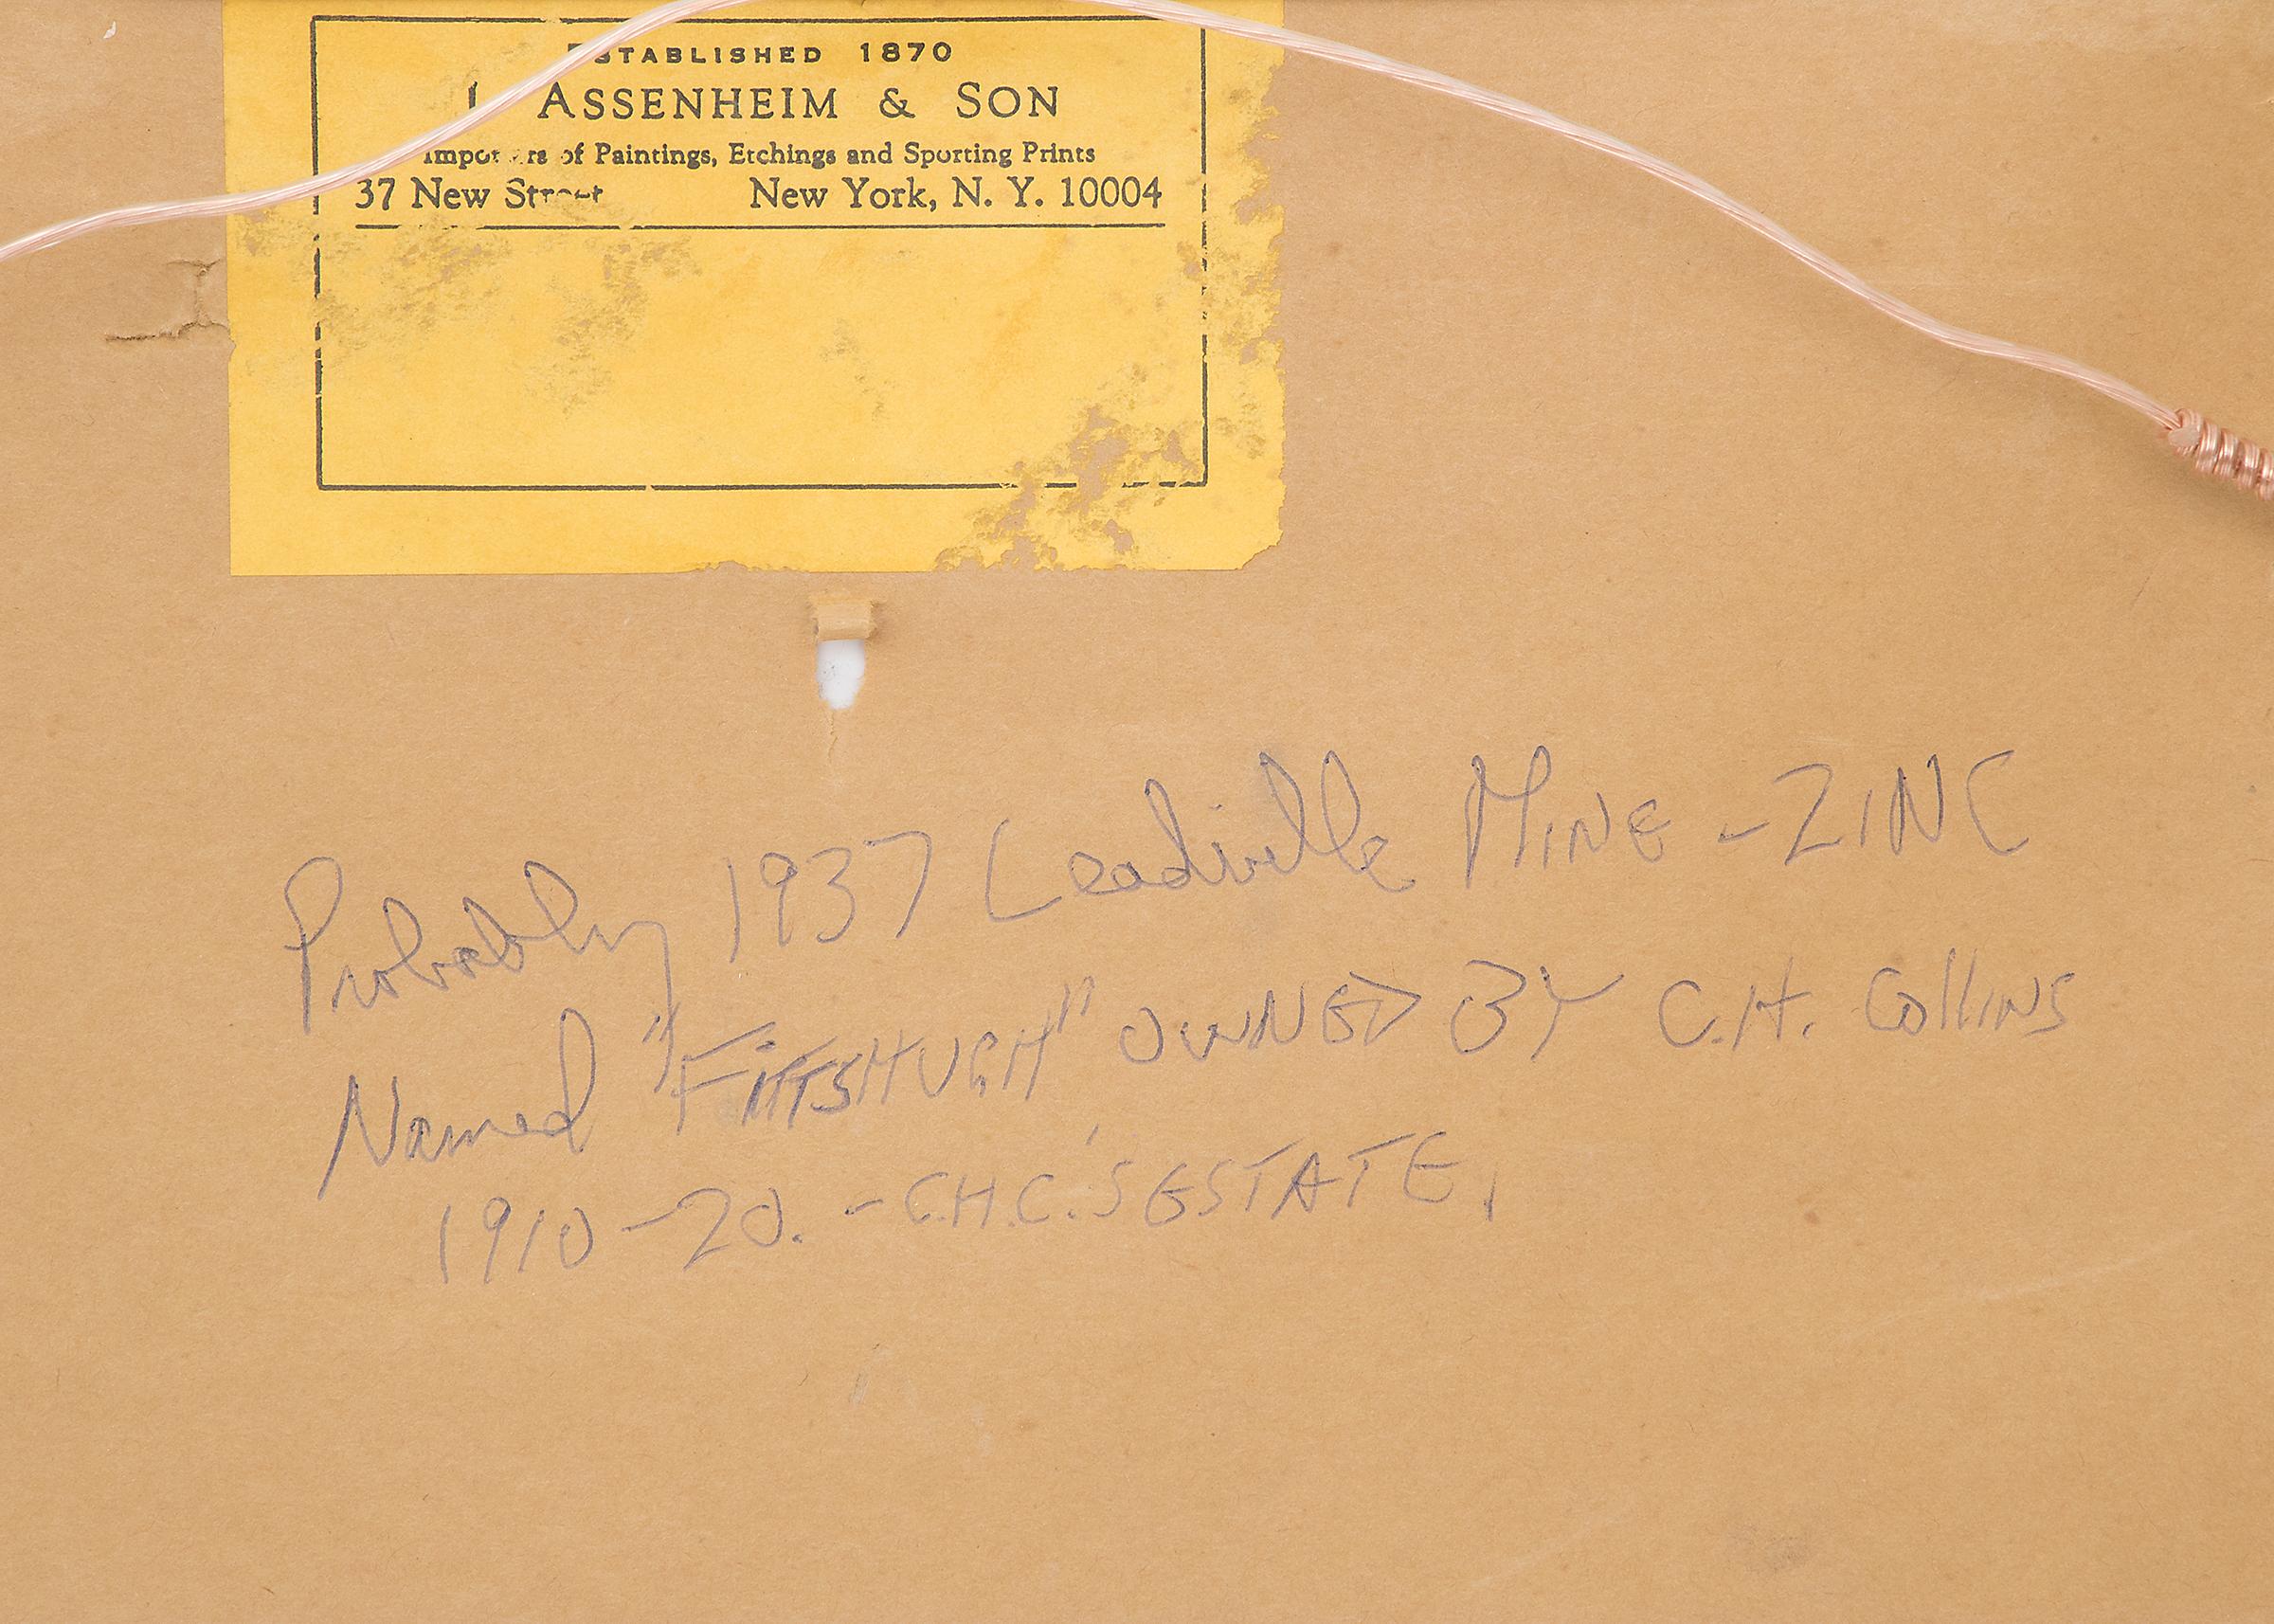 ESTABLISHED 1870
ASSENHEIM & SON
Importers of Paintings, Etchings and Sporting Prints
37 New Street New York, N. Y. 10004
Probably 1937 Leadville MINE - ZINC
Named "FITTSHUGH" OWNED BY C.H. Collins
1910-20. - C.H.C.'S ESTATE.